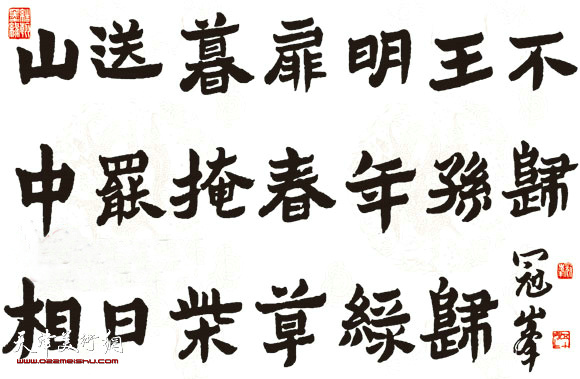 山中相
送罷日
暮掩柴
扉春草
明年綠
王孫歸
不歸
冠峯
天津美術網
www.022meishu.com